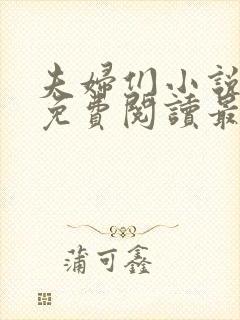 夫婦们小說
免費閱讀最
蒲可鑫